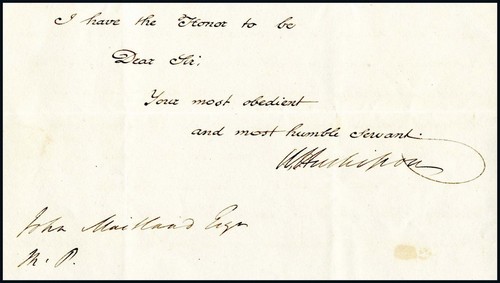 I have the Honor to be
Dear Sir,
Your most obedient
and most humble Servant.
W Huskisson
John Maitland Esqr
M. P.